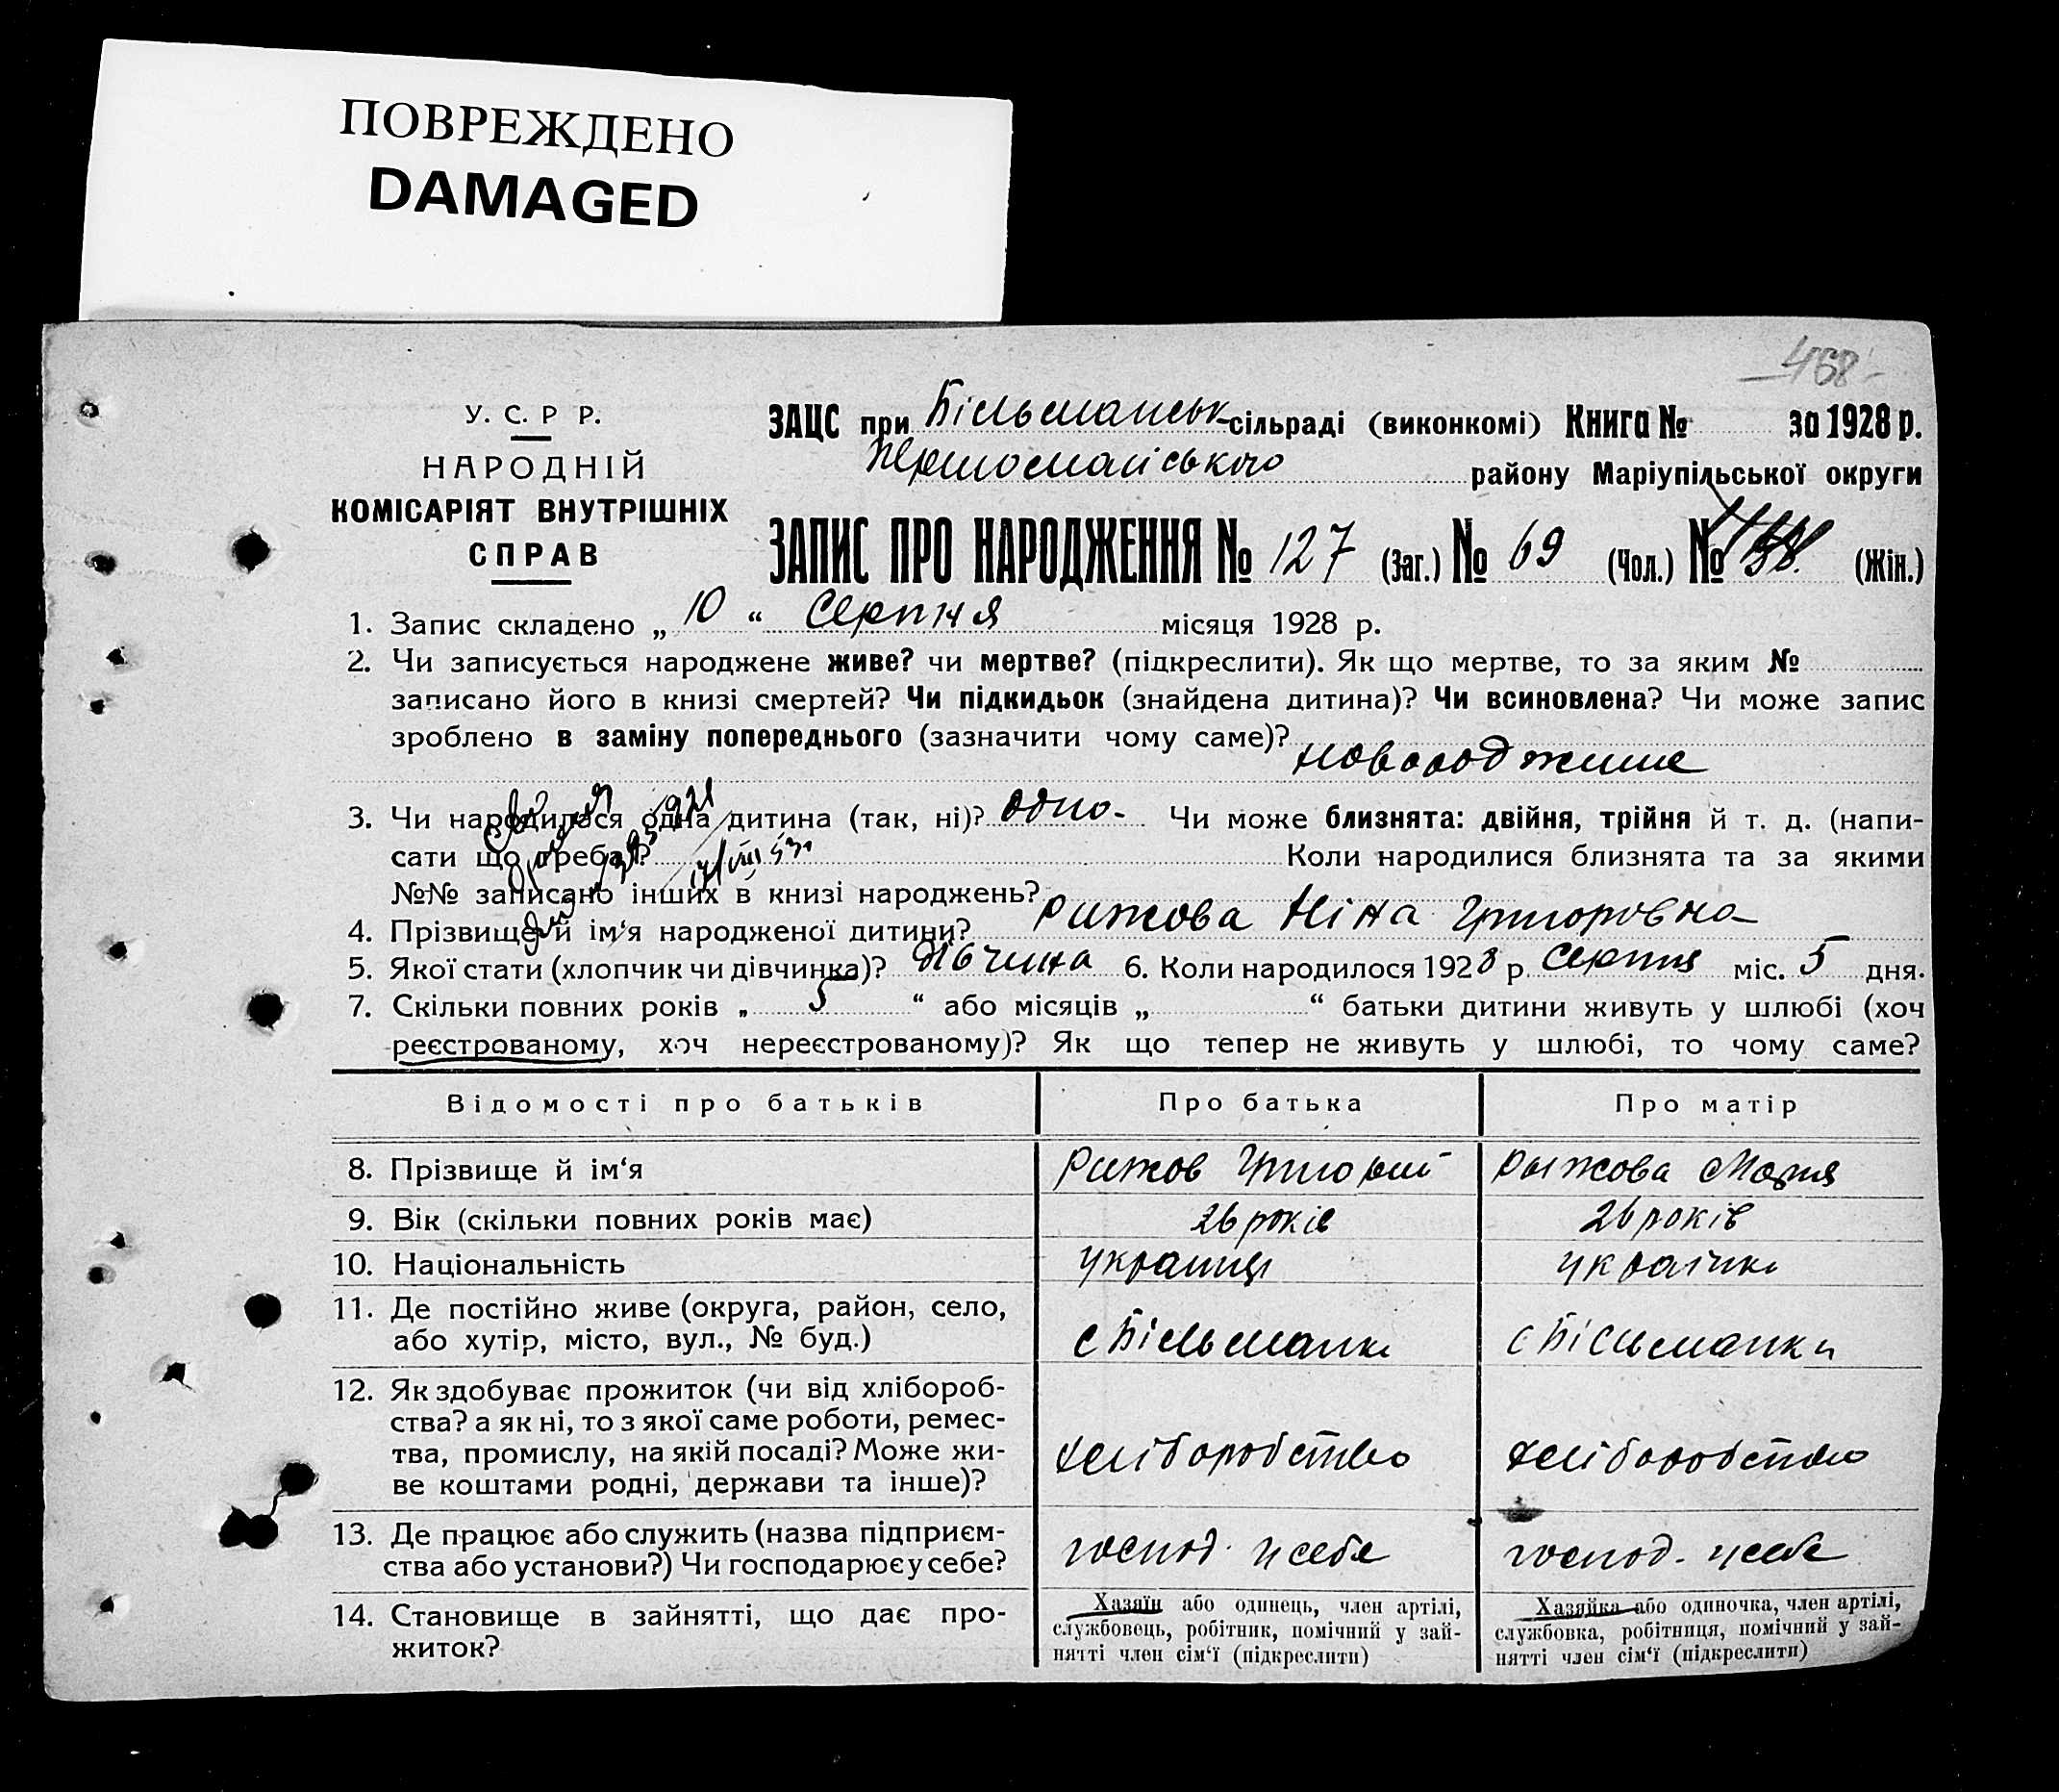 ПОВРЕЖДЕНО
DAMAGED
468
У. С. Р Р.
НАРОДНІЙ
КОМІСАРІЯТ ВНУТРІШНІХ
СПРАВ
ЗАЦС при Більманськ-сільраді (виконкомі) Книга № за 1928 р.
Першомайського району Маріупільської округи
ЗАПИС ПРО НАРОДЖЕННЯ № 127 (Заг.) № 69 (Чол.) № (Жін.)
1. Запис складено „ 10 “ Серпня місяця 1928 р.
2. Чи записується народжене живе? чи мертве? (підкреслити). Як що мертве, то за яким №
записано його в книзі смертей? Чи підкидьок (знайдена дитина)? Чи всиновлена? Чи може запис
зроблено в заміну попереднього (зазначити чому саме)?
новороджине
3. Чи народилася одна дитина (так, ні)? одно- Чи може близнята: двійня, трійня й т. д. (напи-
сати що треба)? Коли народилися близнята та за якими
№№ записано інших в книзі народжень?
4. Прізвище й ім‘я народженої дитини? Рижова Ніна Григоровна
5. Якої стати (хлопчик чи дівчинка)? дівчина 6. Коли народилося 1928 р. Серпня міс. 5 дня.
7. Скільки повних років „ 5 “ або місяців „ “ батьки дитини живуть у шлюбі (хоч
реєстрованому, хоч нереєстрованому)? Як що тепер не живуть у шлюбі, то чому саме?
Відомості про батьків Про батька Про матір
8. Прізвище й ім‘я Рижов Григорий Рыжова Мария
9. Вік (скільки повних років має) 26 років 26 років
10. Національність українці українка
11. Де постійно живе (округа, район, село,
або хутір, місто, вул., № буд.) с Більманка с Більманки
12. Як здобуває прожиток (чи від хлібороб-
ства? а як ні, то з якої саме роботи, ремес-
тва, промислу, на якій посаді? Може жи-
ве коштами родні, держави та інше)? хліборобство хліборобство
13. Де працює або служить (назва підприєм-
ства або установи?) Чи господарює у себе? господ. у себе господ. у себе
14. Становище в зайнятті, що дає про-
житок?
Хазяїн або одинець, член артілі,
службовець, робітник, помічний у зай-
нятті член сім‘ї (підкреслити)
Хазяйка або одиночка, член артілі,
службовка, робітниця, помічний у зай-
нятті член сім‘ї (підкреслити)